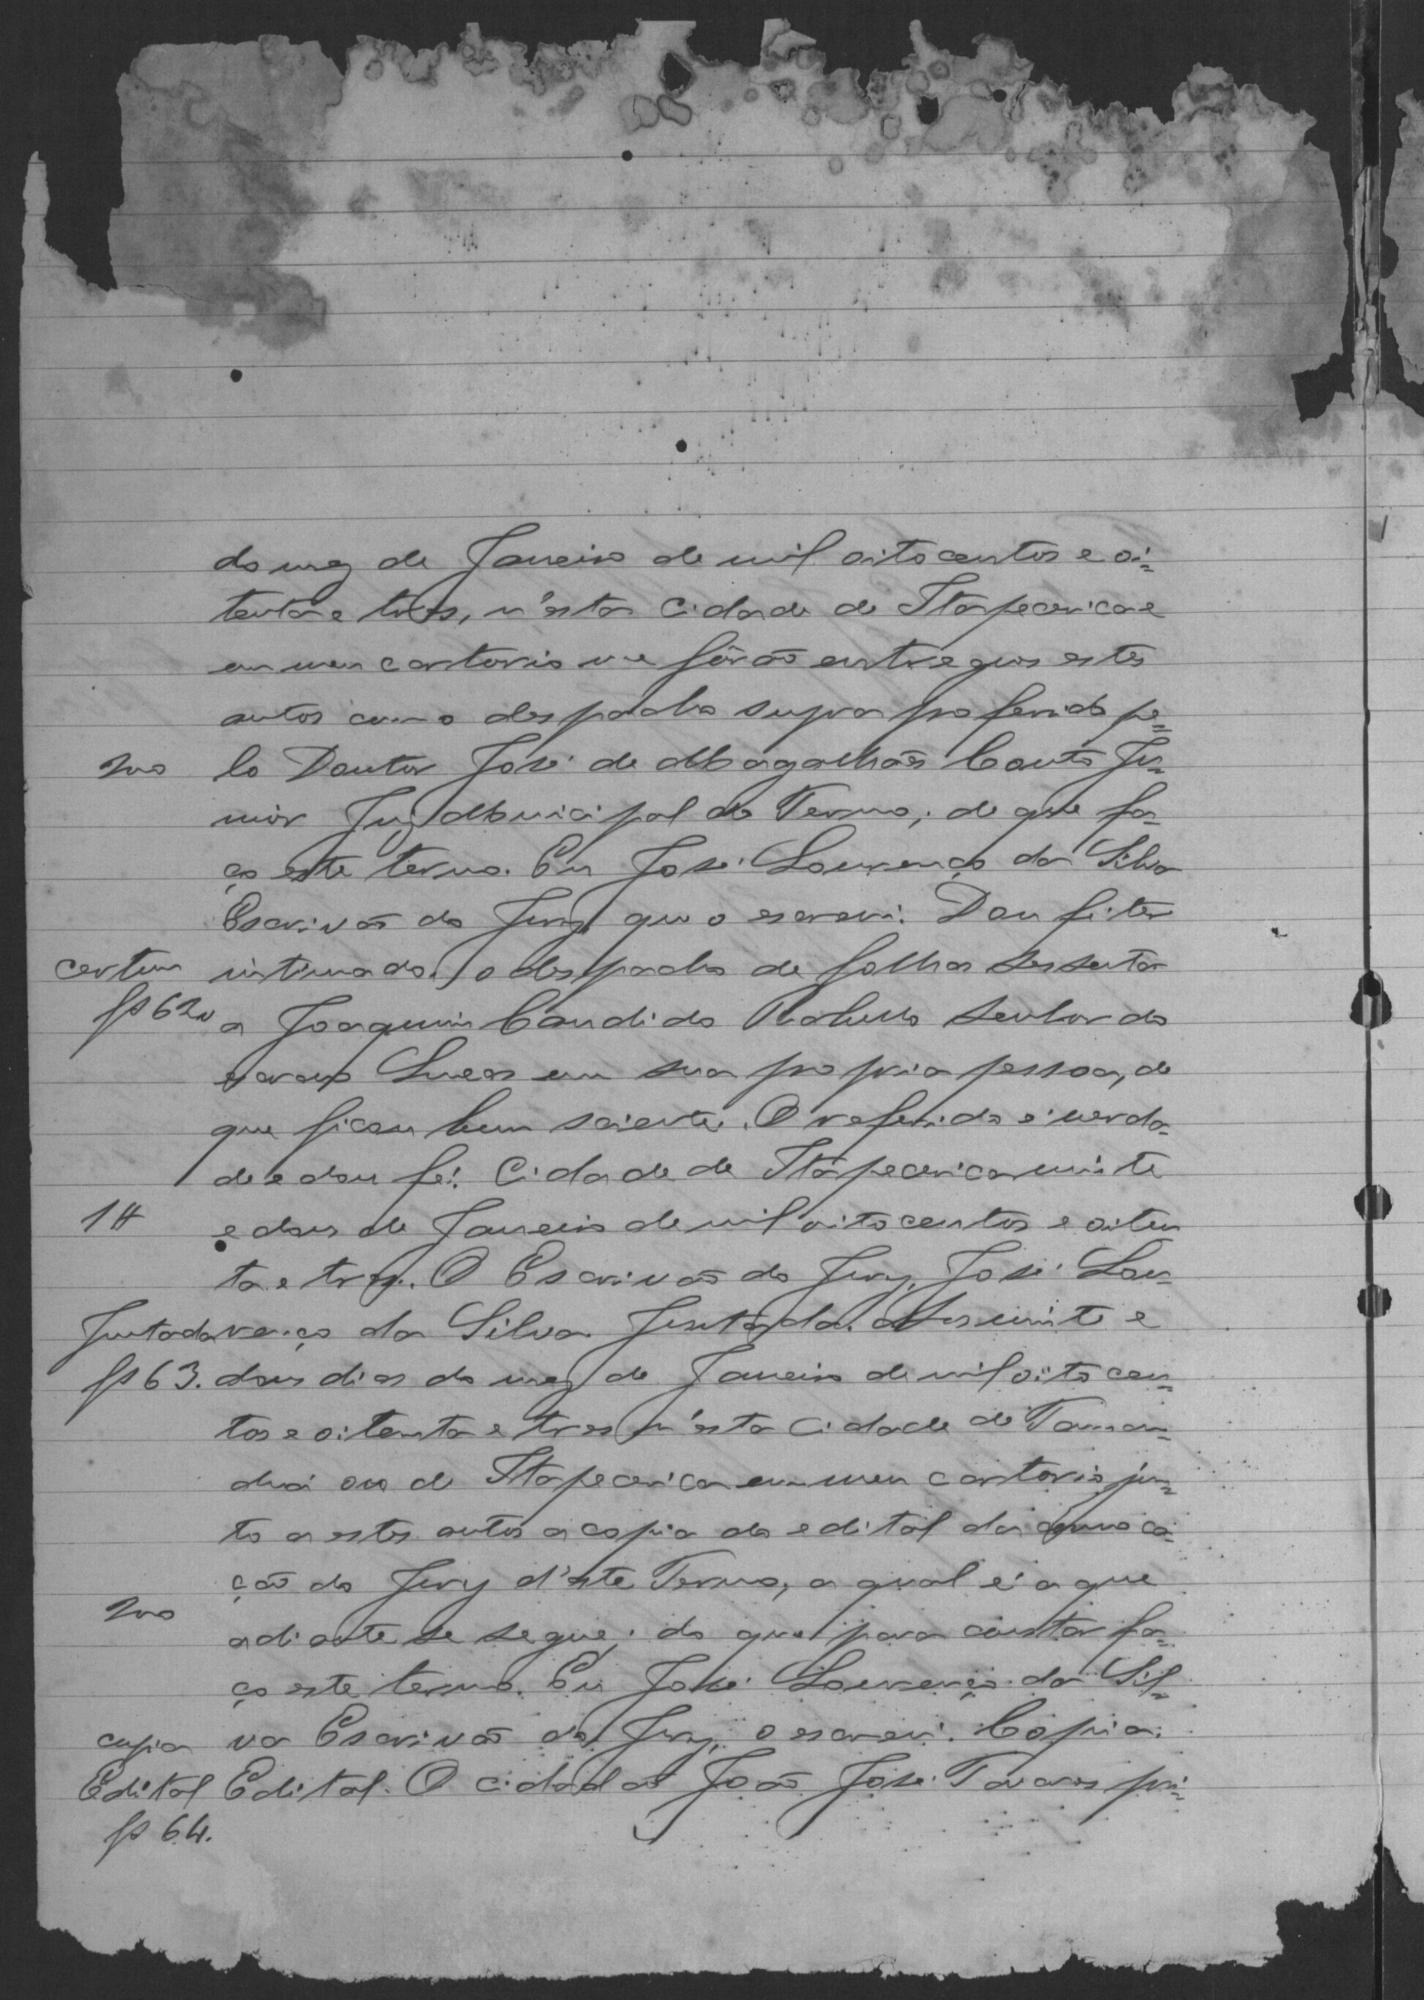 do mez de Janeiro de mil oito centos e oi=
tenta e tres, n'esta Cidade de Itapecerica e
em meu cartorio me fôrão entregues estes
autos com o despacho supra proferido pe=
200 lo Doutor José de Magalhães Couto Ju=
nior Juiz Municipal do Termo; de que fa=
ço este termo. Eu José Lourenço da Silva
Escrivão do Jury que o escrevi. Dou fé ter
intimado o despacho de folhas sessenta
fs 62v a Joaquim Candido senhor do
escravo Lucas em sua propria pessoa, do
que ficou bem sciente. O referido é verda=
de e dou fé. Cidade de Itapecerica vinte
e dous de Janeiro de mil oito centos e oiten
ta e trez. O Escrivão do Jury, José Lou=
Juntada renço da Silva. Juntada. Aos vinte e
fs 63. dous dias do mez de Janeiro de mil oito cen=
tos e oitenta e tres n'esta Cidade de Taman=
duá ora de Itapecerica em meu cartorio jun=
to a estes autos a copia do edital da convoca=
ção do Jury d'este Termo, a qual é a que
200 adiante se segue; do que para constar fa=
ço este termo. Eu José Lourenço da Sil=
copia va Escrivão do Jury, o escrevi. Copia.
Edital Edital. O cidadão João José Tavares pri=
fs 64.